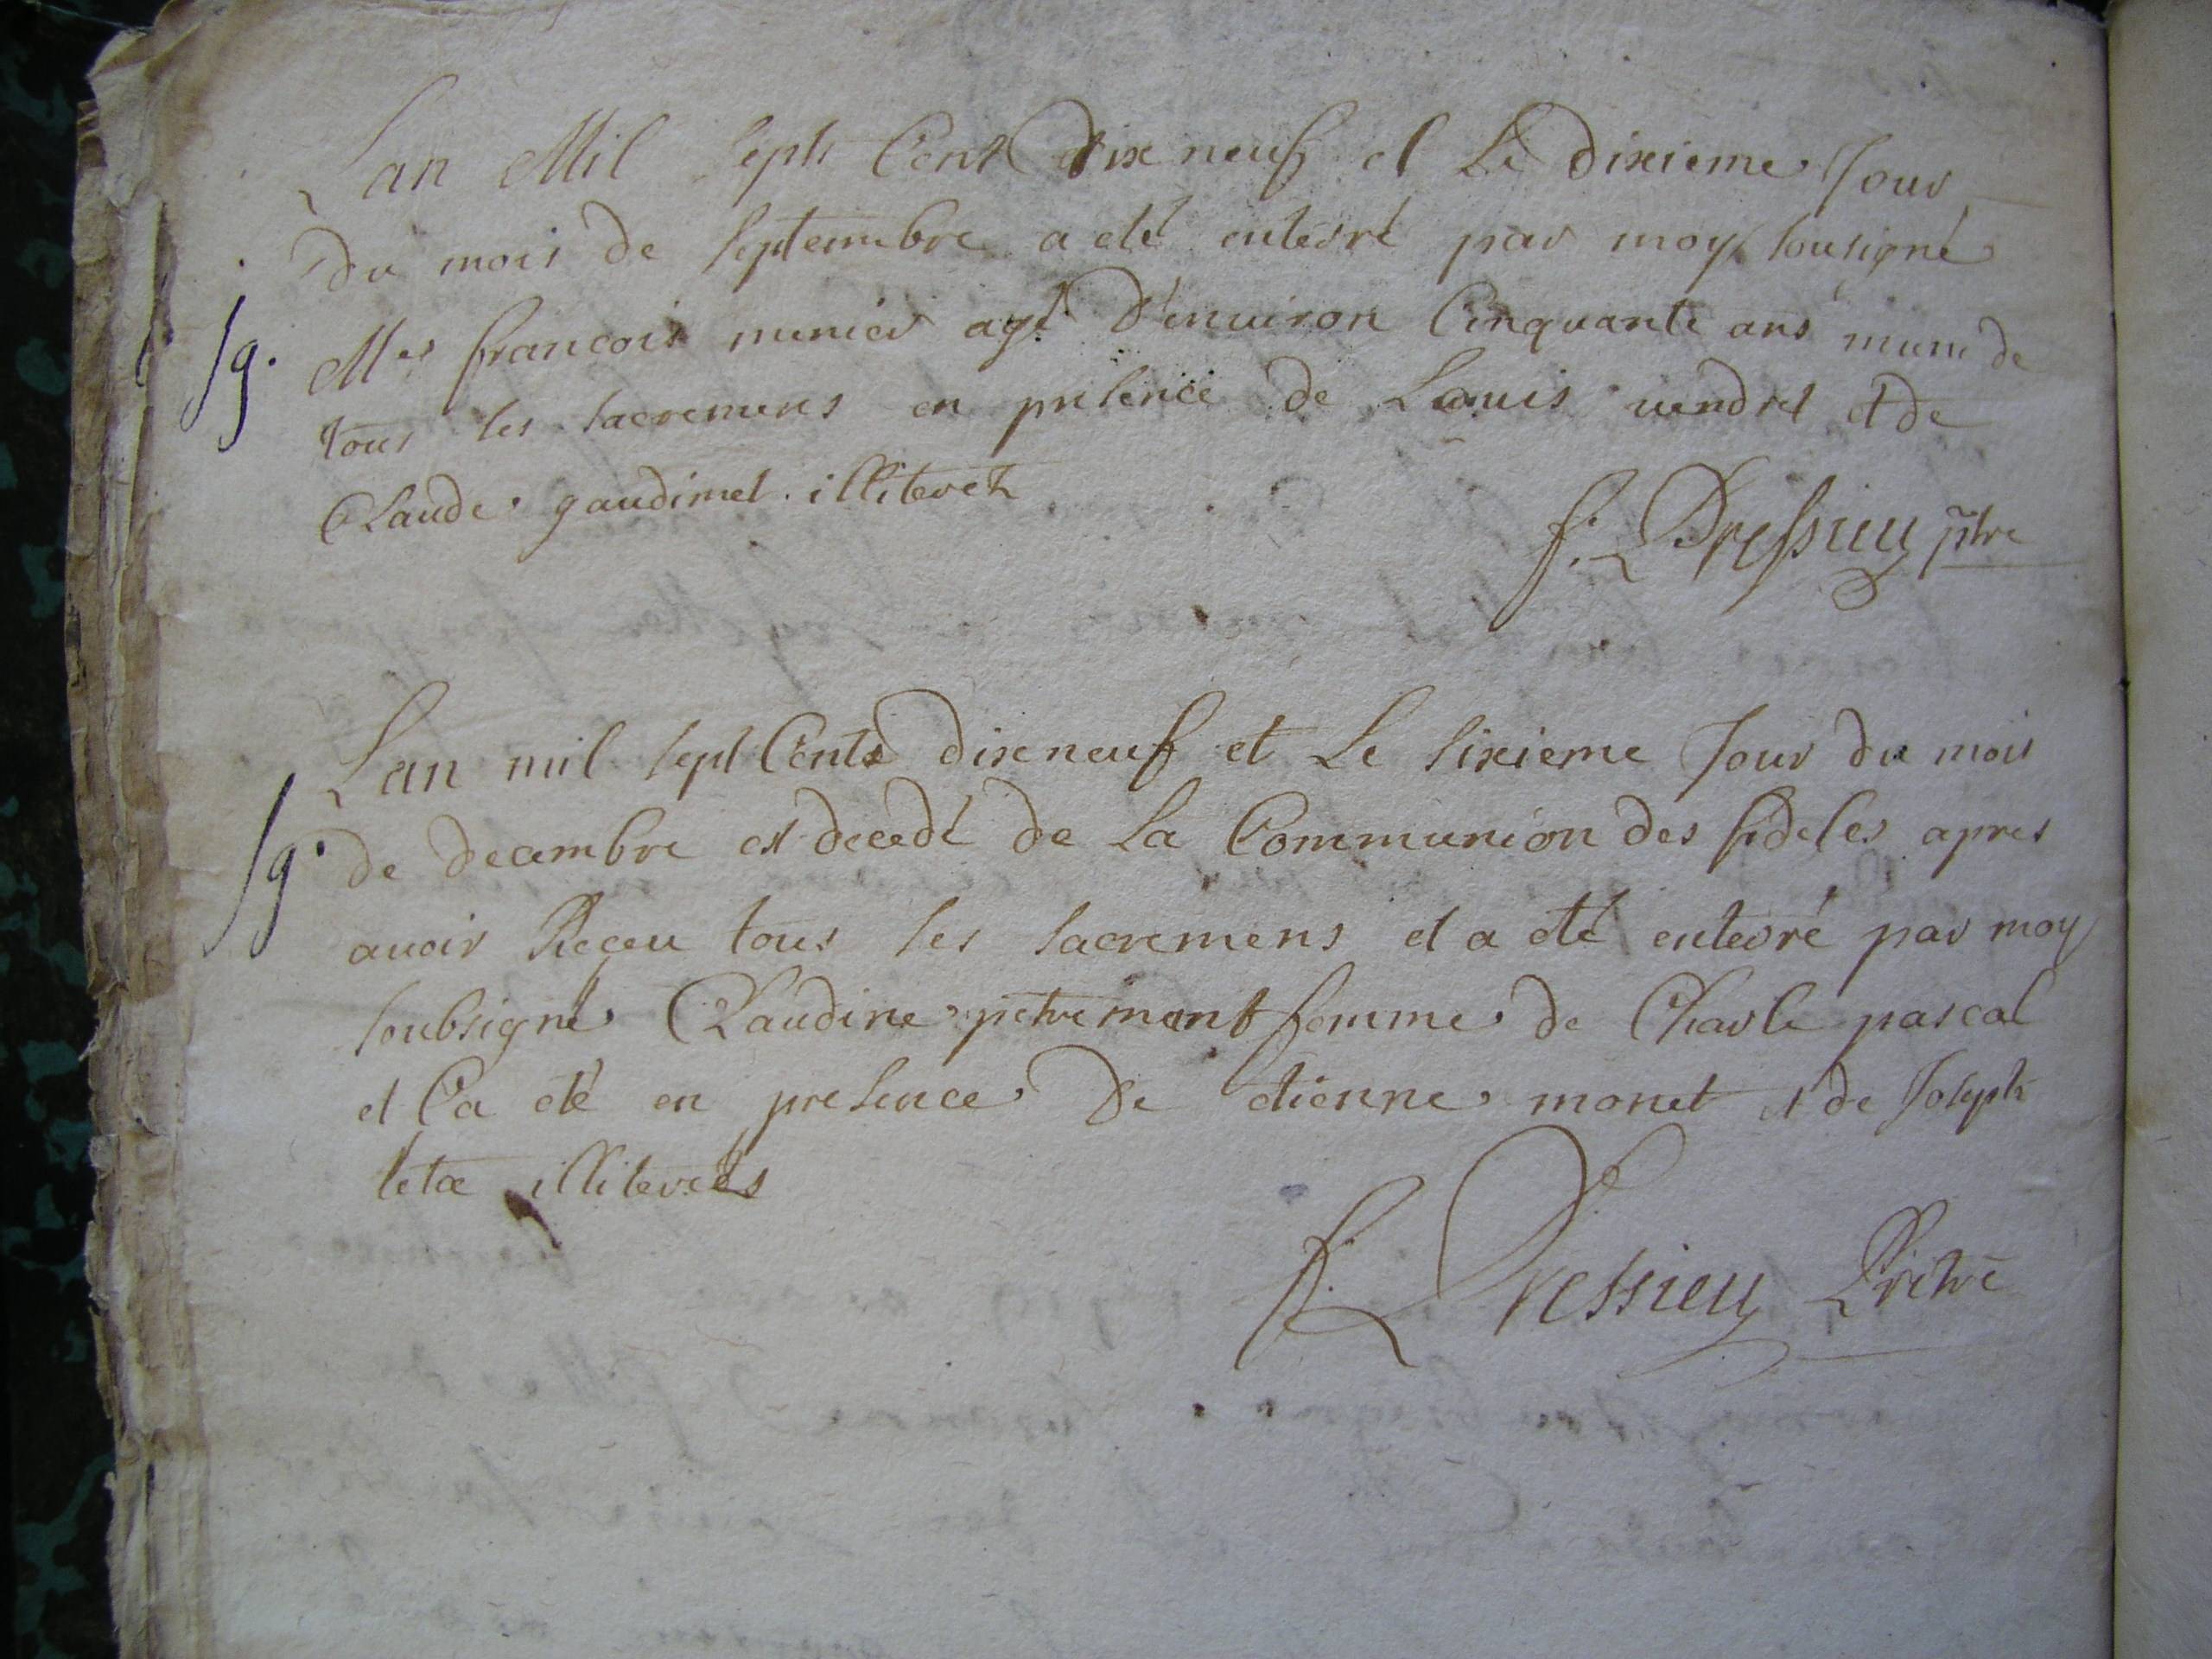 Lan Mil Sept Cent dix neuf et Le dixieme Jour
du mois de Septembre a eté enterré par moy sousigné
Mes francois munier agé d'environ Cinquante ans muni de
tous les sacremens en presence de Louis vendret et de
Claude gaudimet illiterez
f. Dressieu ptre
Lan mil sept Cents dixneuf et Le sixieme Jour du mois
de decembre est decedé de La Communion des fideles apres
avoir Reçeu tous les sacremens et a eté enterré par moy
soubsigné Claudine petremant femme de Charle pascal
et Ca eté en presence De etienne monet et de Joseph
illiterés
f. Dressieu Pretre